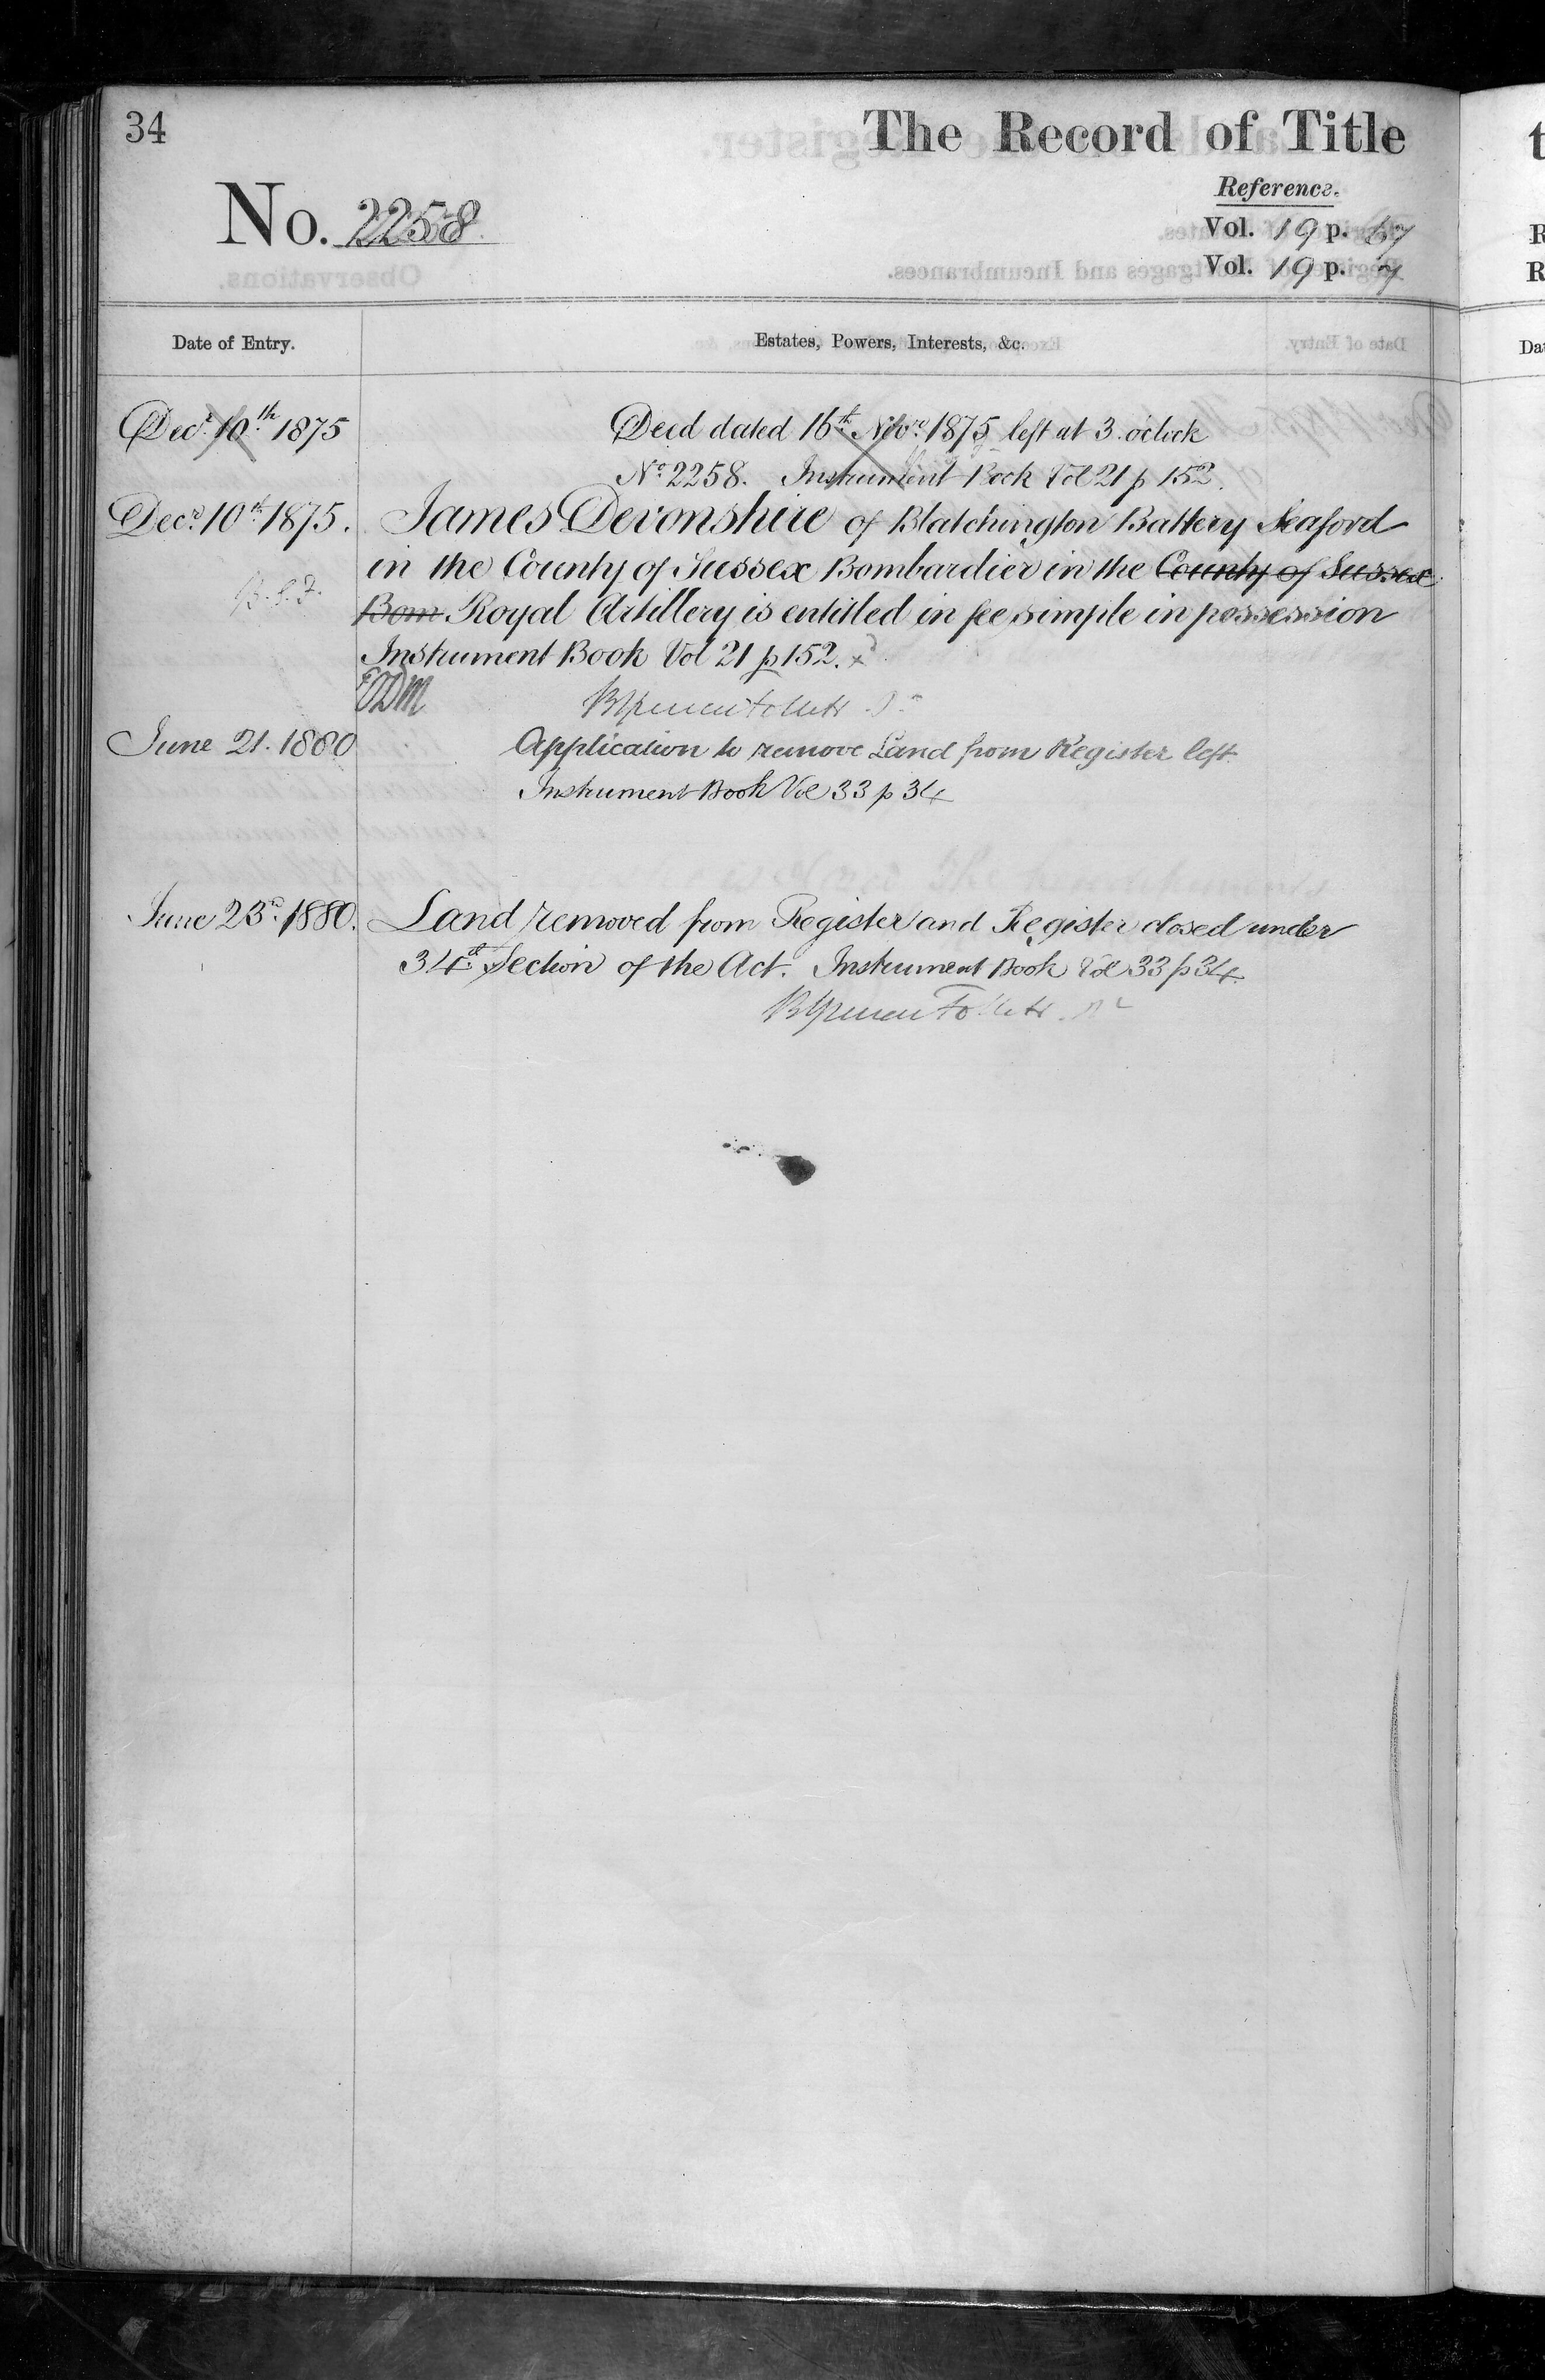 34
The Record of Title
Reference.
No. 2258
Vol. 19 p. 67
Vol. 19 p. 7
Date of Entry.
Estates, Powers, Interests, &c.
Decr. 10th 1875
Deed dated 16th Novr. 1875 left at 3 o'clock
No. 2258. Instrument Book Vol 21 p 152.
Decr. 10th 1875.
James Devonshire of Blatchington Battery Seaford
in the County of Sussex Bombardier in the County of Sussex
Bom Royal Artillery is entitled in fee simple in possession
B.S.F.
Instrument Book Vol 21 p 152.
June 21. 1880
Application to remove Land from Register left.
Instrument Book Vol 33 p 34
June 23rd. 1880.
Land removed from Register and Register closed under
34th Section of the Act. Instrument Book Vol 33 p 34.